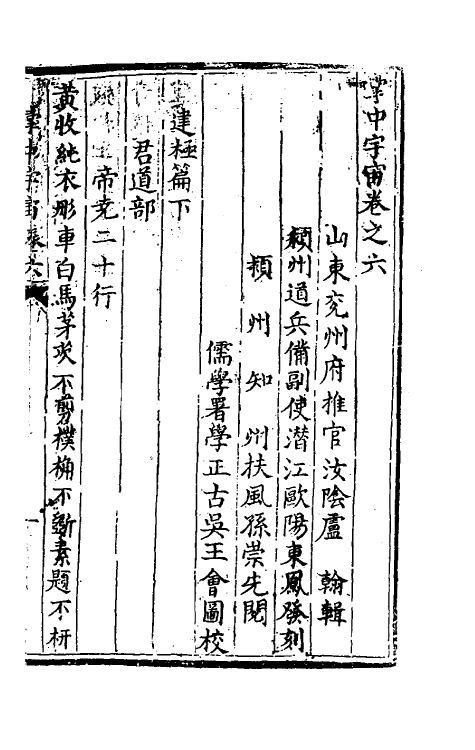 掌中宇宙卷之六
山東兖州府推官汝陰盧 翰輯
潁州道兵備副使潜江歐陽東鳳發刻
潁州知州扶風孫崇先閱
儒學署學正古吳王會圖校
建極篇下
君道部
帝尭二十行
黃收純衣彤車白馬茅茨不剪樸桷不斵素題不枅